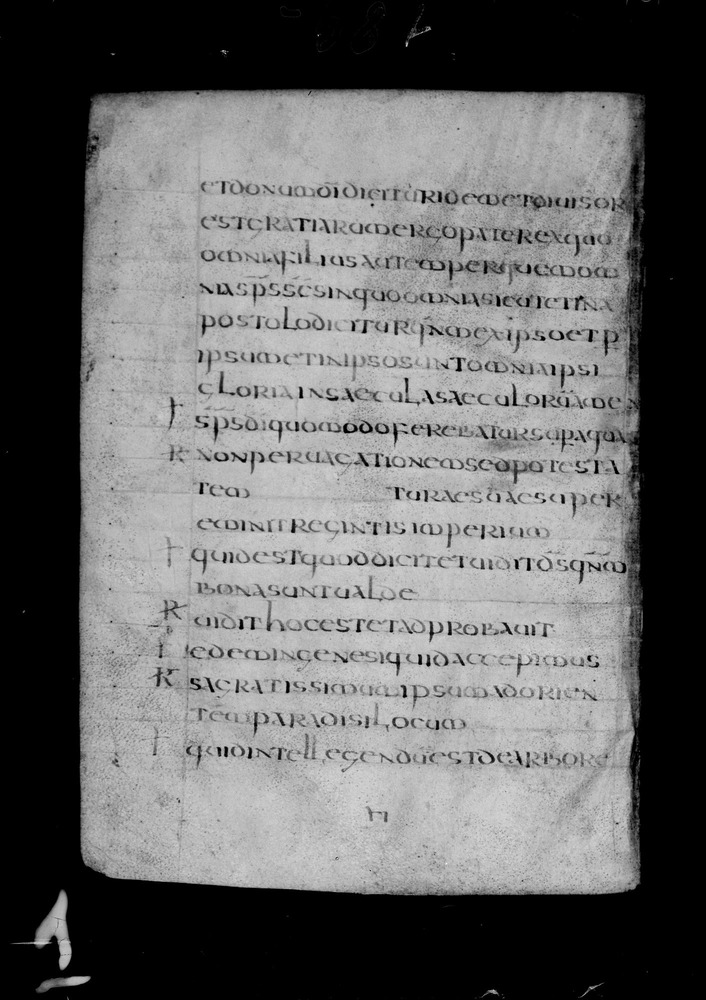 etdonumdi diciturid emetdiuisor
estgratiarumergopaterexquo
omniafiliusautemperquemom
niasp̄sscs̄inquoomniasicutetina
postolodiciturqn̄mexipsoetp
ipsumetinipsosuntomniaipsi
gloriainsaeculasaeculorūamen
ϯ sp̄sdīquomodoferebatursupaquas
R nonperuagationemsedpotesta
tem turaesuaesuper
eminitregintisimperium
ϯ quidestquoddicitetuiditds̄qn̄m
bonasuntualde
R uidithocestetadprobauit
ϯ edemingenesiquidaccepimus
R sacratissimumipsumadorien
temparadisilocum
ϯ quidintellegendūestdearbore
VI
1